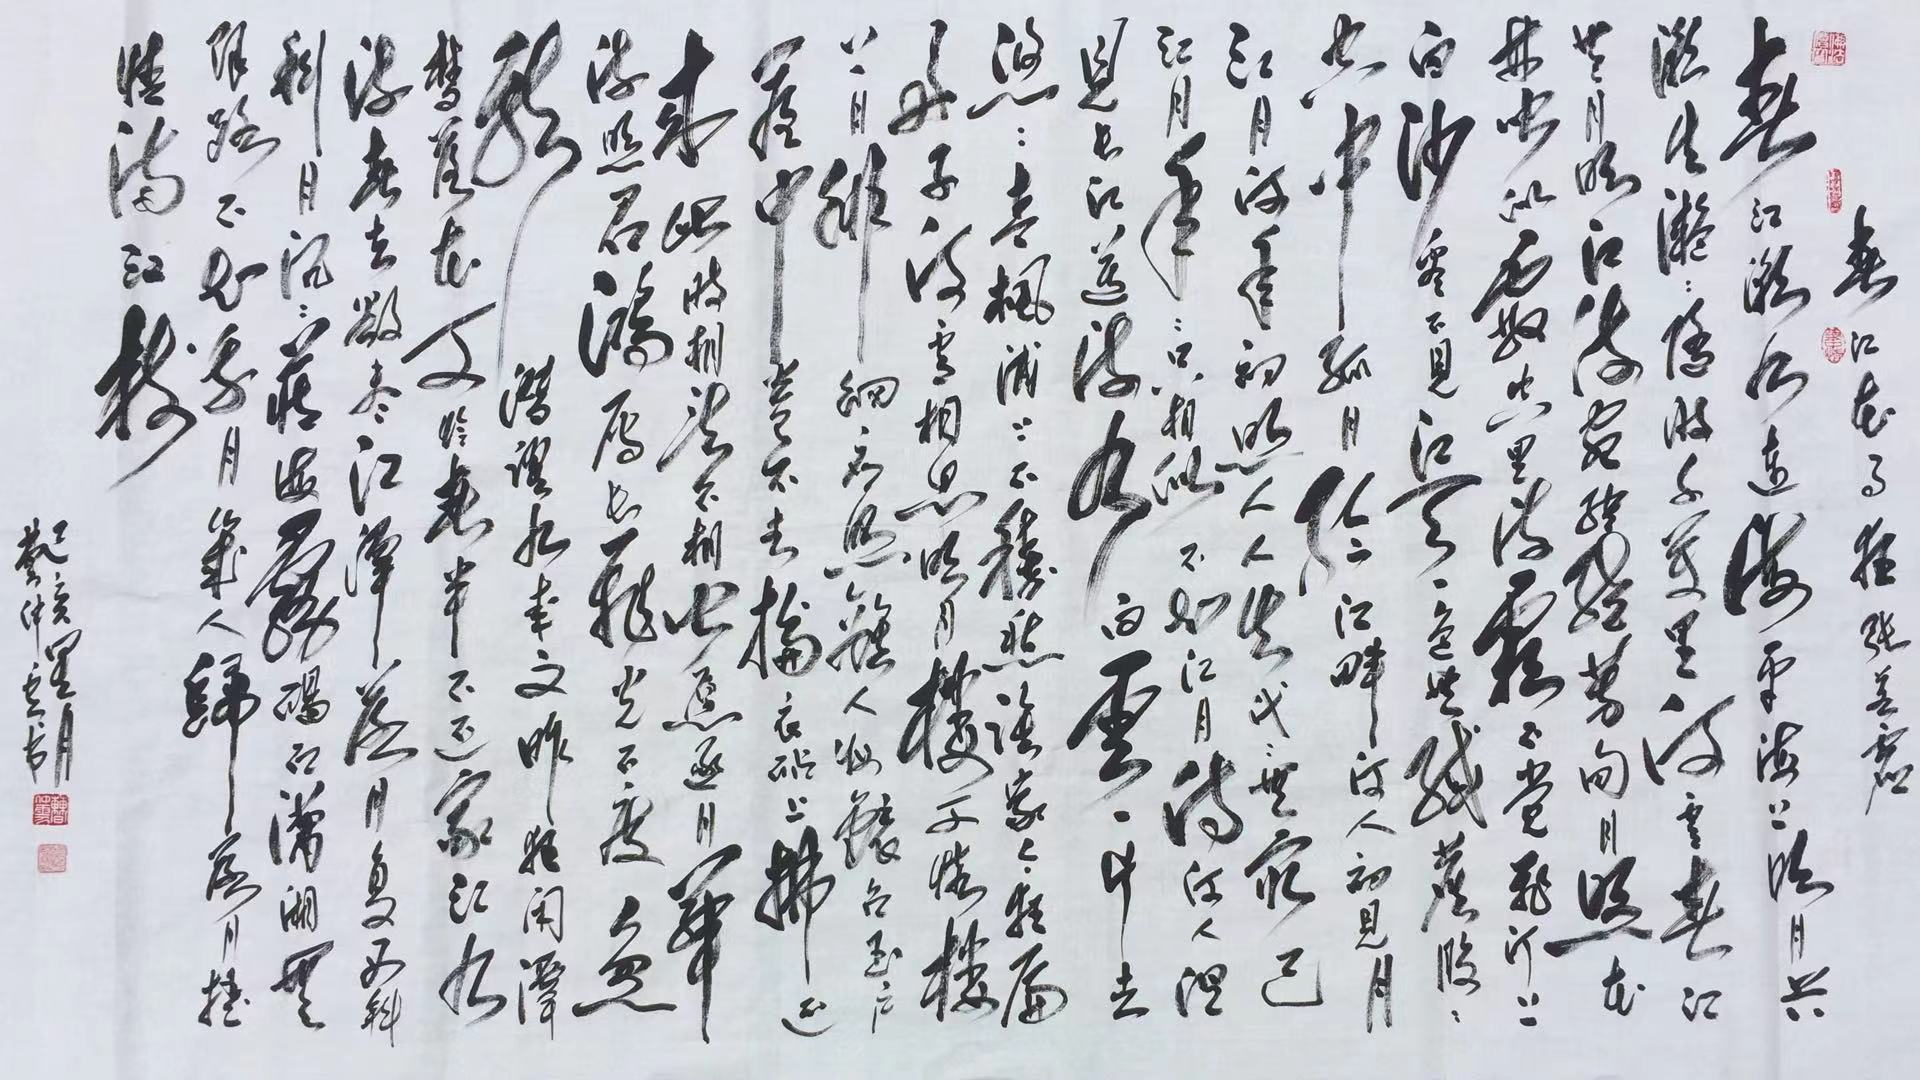 春江花月夜張若虛
春江潮水連海平海上明月共
潮生灩々隨波千萬里何處春江
無月明江流宛轉繞芳甸月照花
林皆似霰空里流霜不覺飛汀上
白沙看不見江天一色無纖塵皎々
空中孤月輪江畔何人初見月
江月何年初照人人生代々無窮已
江月年々只相似不知江月待何人但
見長江送流水白雲一片去
悠々青楓浦上不勝愁誰家今夜扁
舟子何處相思明月樓可憐樓
上月徘徊應照離人妝鏡台玉戶
簾中卷不去搗衣砧上拂還
來此時相望不相聞願逐月華
流照君鴻雁長飛光不度魚
龍潛躍水成文昨夜閑潭
夢落花可憐春半不還家江水
流春去欲盡江潭落月復西斜
斜月沉々藏海霧碣石瀟湘無
限路不知乘月幾人歸落月搖
情滿江樹
己亥